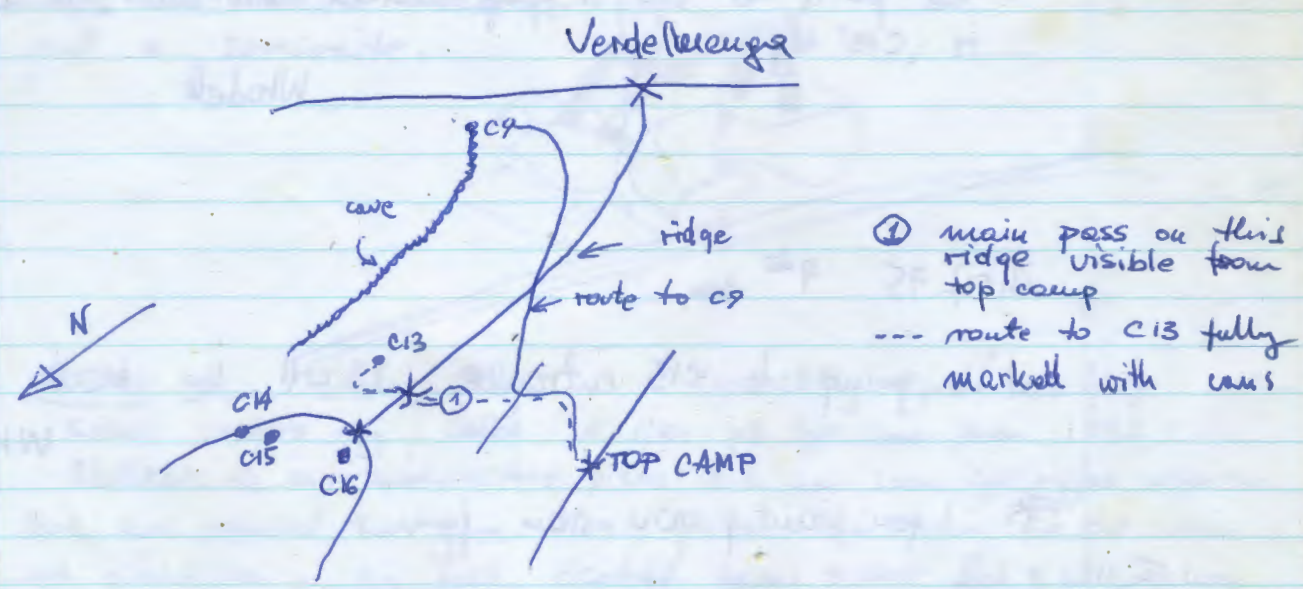 Verdelluenga
C9
cave
ridge
route to C9
N
C13
C14
C15
C16
1
TOP CAMP
① main pass on this
ridge visible from
top camp
--- route to C13 fully
marked with cans